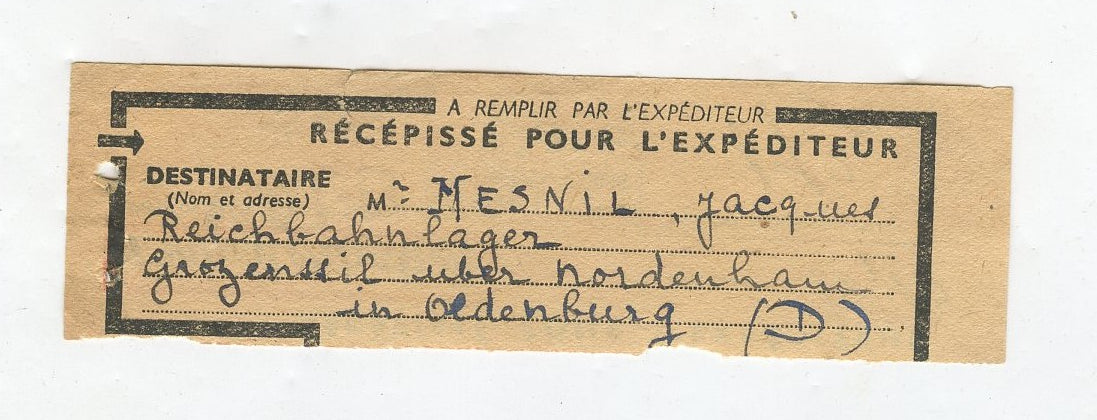 A REMPLIR PAR L'EXPÉDITEUR
RÉCÉPISSÉ POUR L'EXPÉDITEUR
DESTINATAIRE
(Nom et adresse) Mr MESNIL, Jacques
Reichbahnlager
Grozenssil uber Nordenham
in Oldenburg (D)